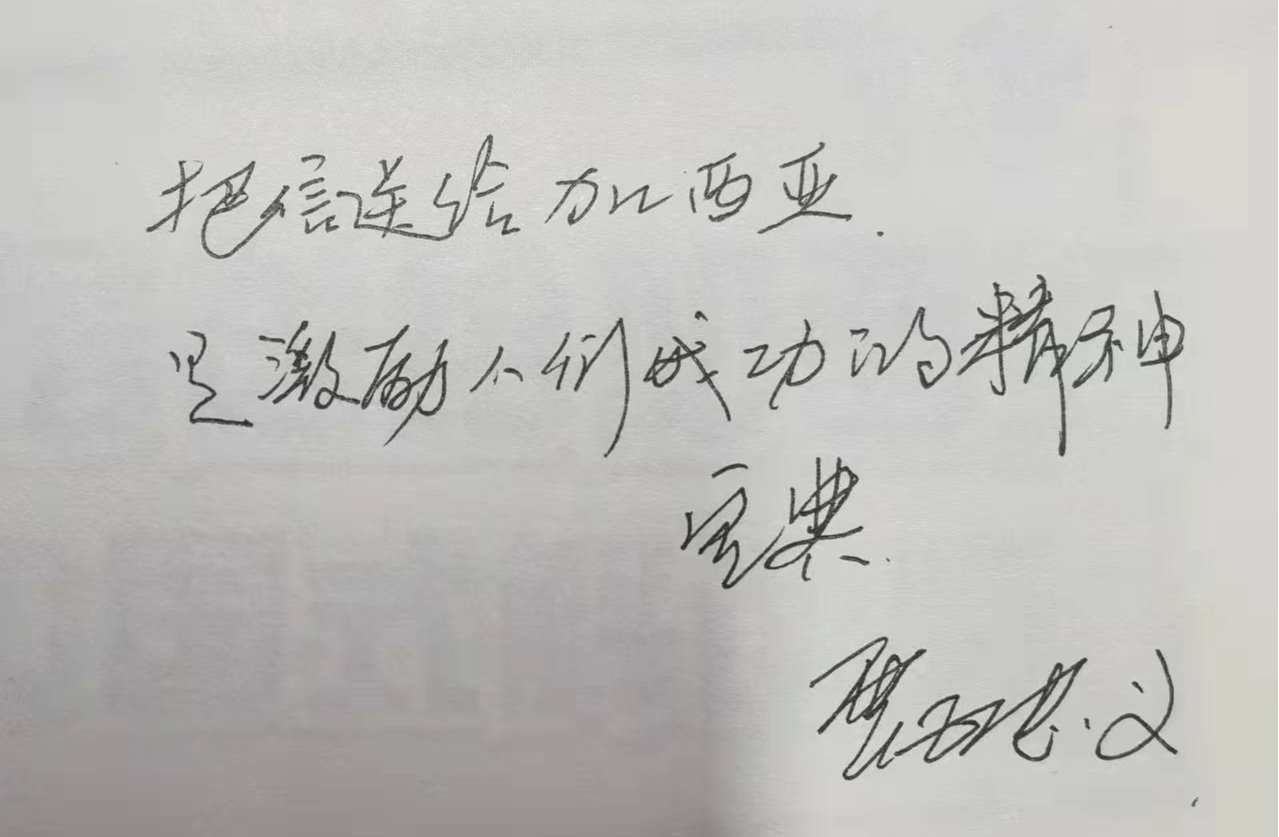 把信送给加西亚.
是激励人们成功的精神
宝典.